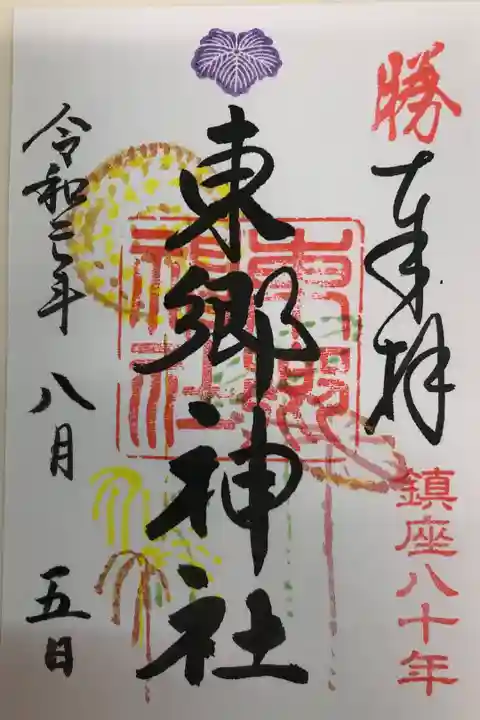 勝
奉拝
鎮座八十年
東郷神社
東郷
神社
令和二年 八月 五日